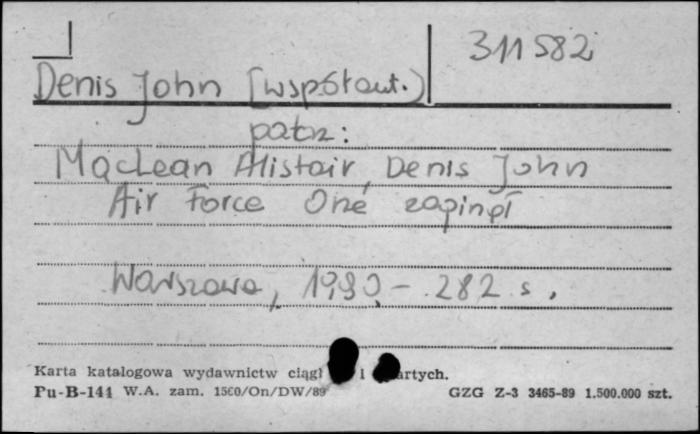 311582
Denis John [współaut.)
patrz:
MacLean Alistair, Denis John
Air Force One zaginął
Warszawa, 1990 - 282 s.
Karta katalogowa wydawnictw ciągł i artych.
Pu-B-144 W.A. zam. 1560/On/DW/89 GZG Z-3 3465-89 1.500.000 szt.